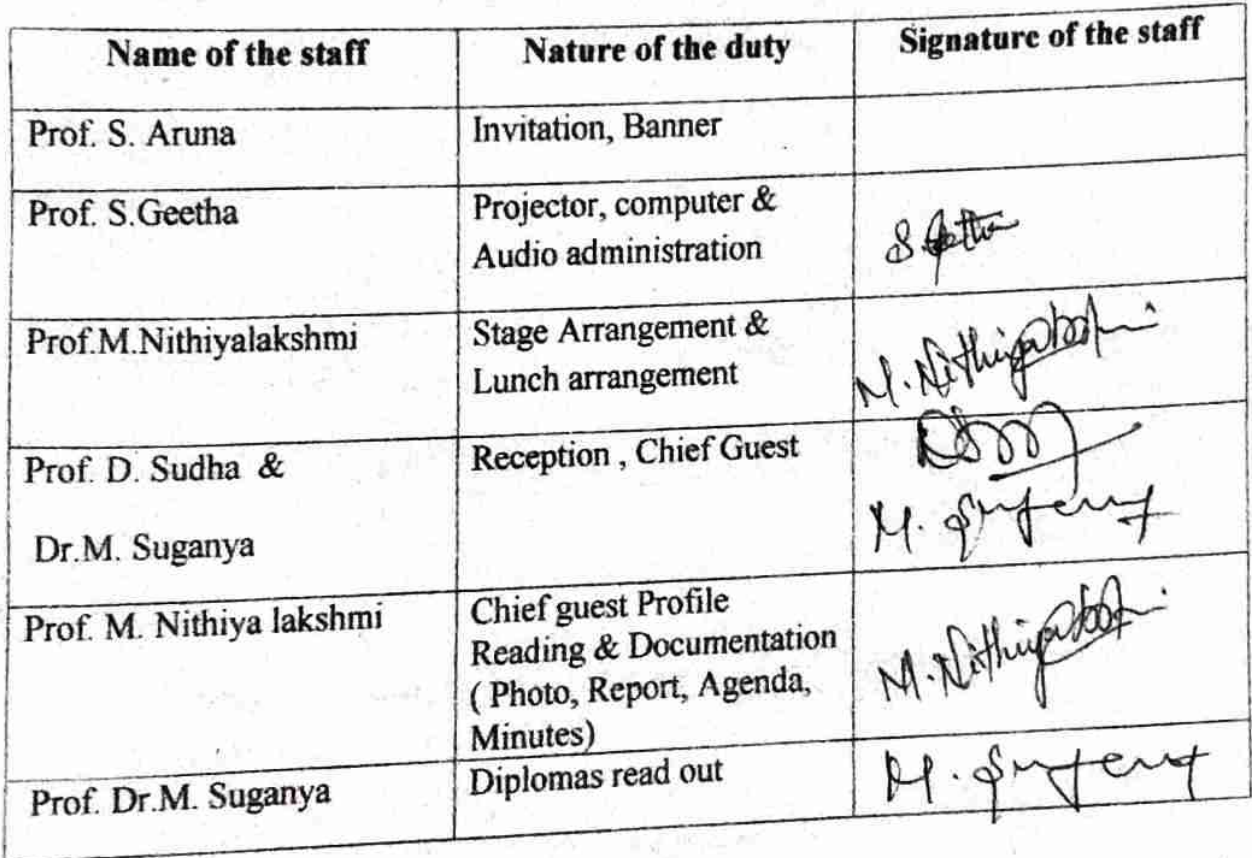 Name of the staff Nature of the duty Signature of the staff
Prof. S. Aruna Invitation, Banner
Prof. S.Geetha Projector, computer &
Audio administration S.Geetha
Prof.M.Nithiyalakshmi Stage Arrangement &
Lunch arrangement M.Nithiyalakshmi
Prof. D. Sudha & Reception , Chief Guest
Dr.M. Suganya M.
Prof. M. Nithiya lakshmi Chief guest Profile
Reading & Documentation
( Photo, Report, Agenda, M.Nithiyalakshmi
Minutes)
Prof. Dr.M. Suganya Diplomas read out M.